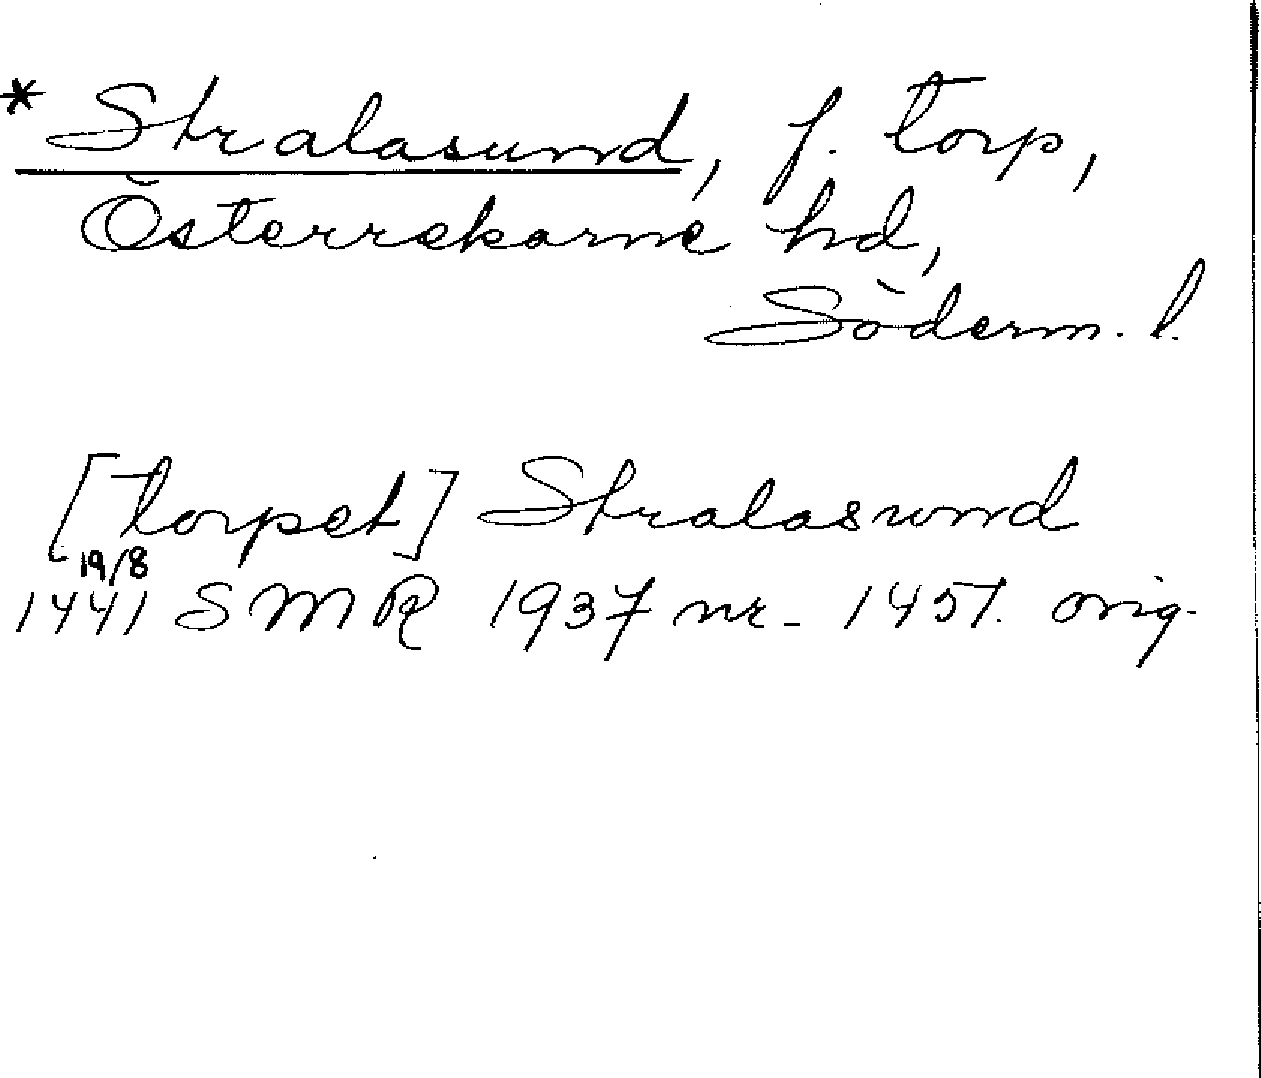 * Stralasund, f. torp,
Österrekarne hd,
Söderm. l.
[torpet] Stralasund
19/8
1441 SMR 1937 nr. 1457. orig.